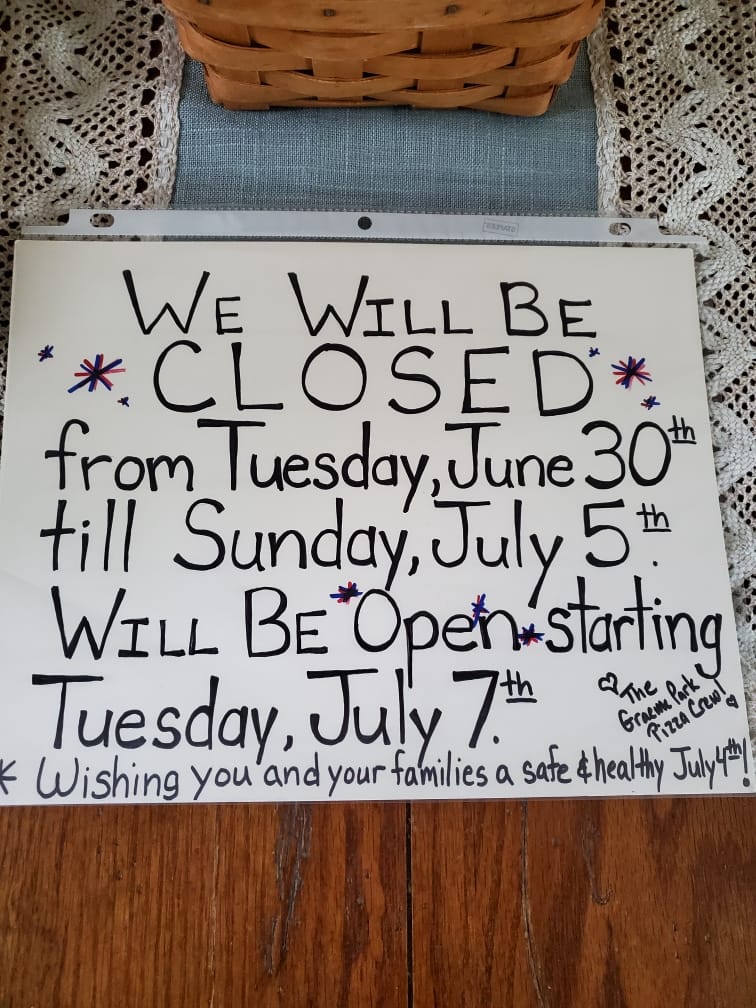 WE WILL BE
CLOSED
from Tuesday, June 30th
till Sunday, July 5th.
WILL BE Open starting
Tuesday, July 7th.
♡ The
Graeme Park
Pizza Crew! ♡
* Wishing you and your families a safe & healthy July 4th!